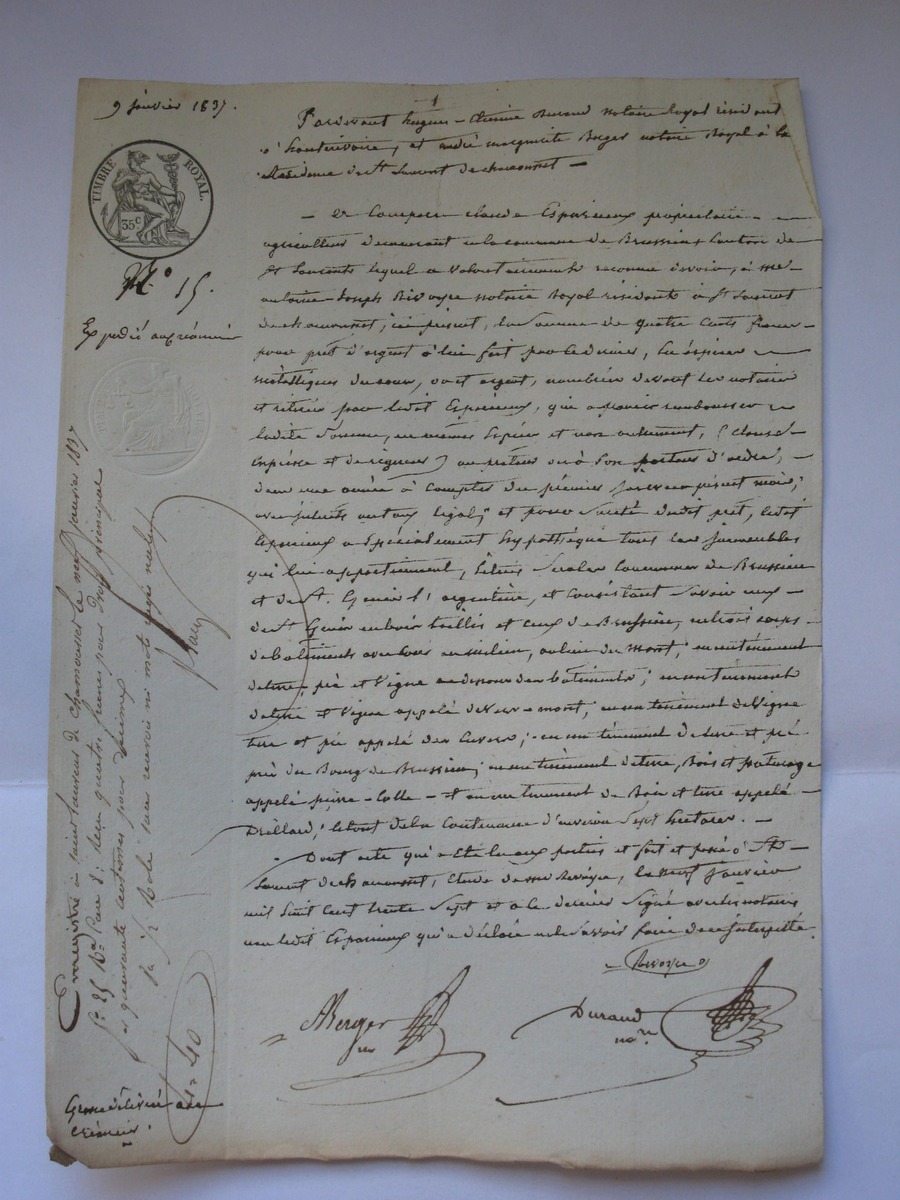 9 janvier 1837.
TIMBRE ROYAL.
35 c
N.° 15.
Expédié au créancier
Pardevant hugues-Etienne Durand notaire Royal résidant
à hauterivoire, et andré marguerite Berger notaire Royal à la
Résidence de St Laurent de chamousset —
— a Comparu claude Esparieux propriétaire-
agriculteur demeurant en la commune de Brussieu Canton de
St Laurent, lequel a volontairement reconnu devoir, à me
antoine-Joseph Rivoyre notaire Royal résidant à St Laurent
de chamousset, ici présent, la somme de quatre cents francs
pour prêt d'argent à lui fait par ce dernier, en espèces
métalliques du cour, or et argent, nombrées devant les notaires
et retirées par ledit Esparieux, qui a promis rembourser
ladite somme, en mêmes espèces et non autrement, (clause
expresse et de rigueur) au prêteur ou à son porteur d'ordre,
dans une année à compter du premier janvier présent mois,
avec intérêts au taux légal; et pour sureté dudit prêt, ledit
Esparieux a spécialement hypothéqué tous les immeubles
qui lui appartiennent, situés sur les communes de Brussieu
et de St Genis l'argentière, et consistant savoir ceux
de St Genis en bois taillis et ceux de Brussieu, en trois corps
de batiments avec cour au milieu, au lieu du mont; en un ténement
de terre, pré et vigne au dessous des batiments; en un ténement
de terre et vigne appelé mont, en un ténement de vigne
terre et pré appelé; en un ténement de terre et pré
près du Bourg de Brussieu; en un ténement de terre, bois et paturage
appelé pierre- — et en un ténement de Bois et terre appelé
le tout de la contenance d'environ sept hectares. —
Dont acte qui a été lu aux parties et fait et passé à St
Laurent de chamousset, étude de me Rivoyre, le neuf janvier
mil huit cent trente sept et a ce dernier signé avec les notaires
non ledit Esparieux qui a déclaré ne le savoir faire de ce interpellé.
Rivoyre
ABerger
Durand
no.re
Enregistré à saint Laurent de chamousset le neuf janvier 1837
f.° 25 R.° Case 8; reçu quatre francs pour Droit principal
et quarante centimes pour dixième
sans renvoi ni mots rayés nuls
4 = 40
Grosse délivrée au
créancier.